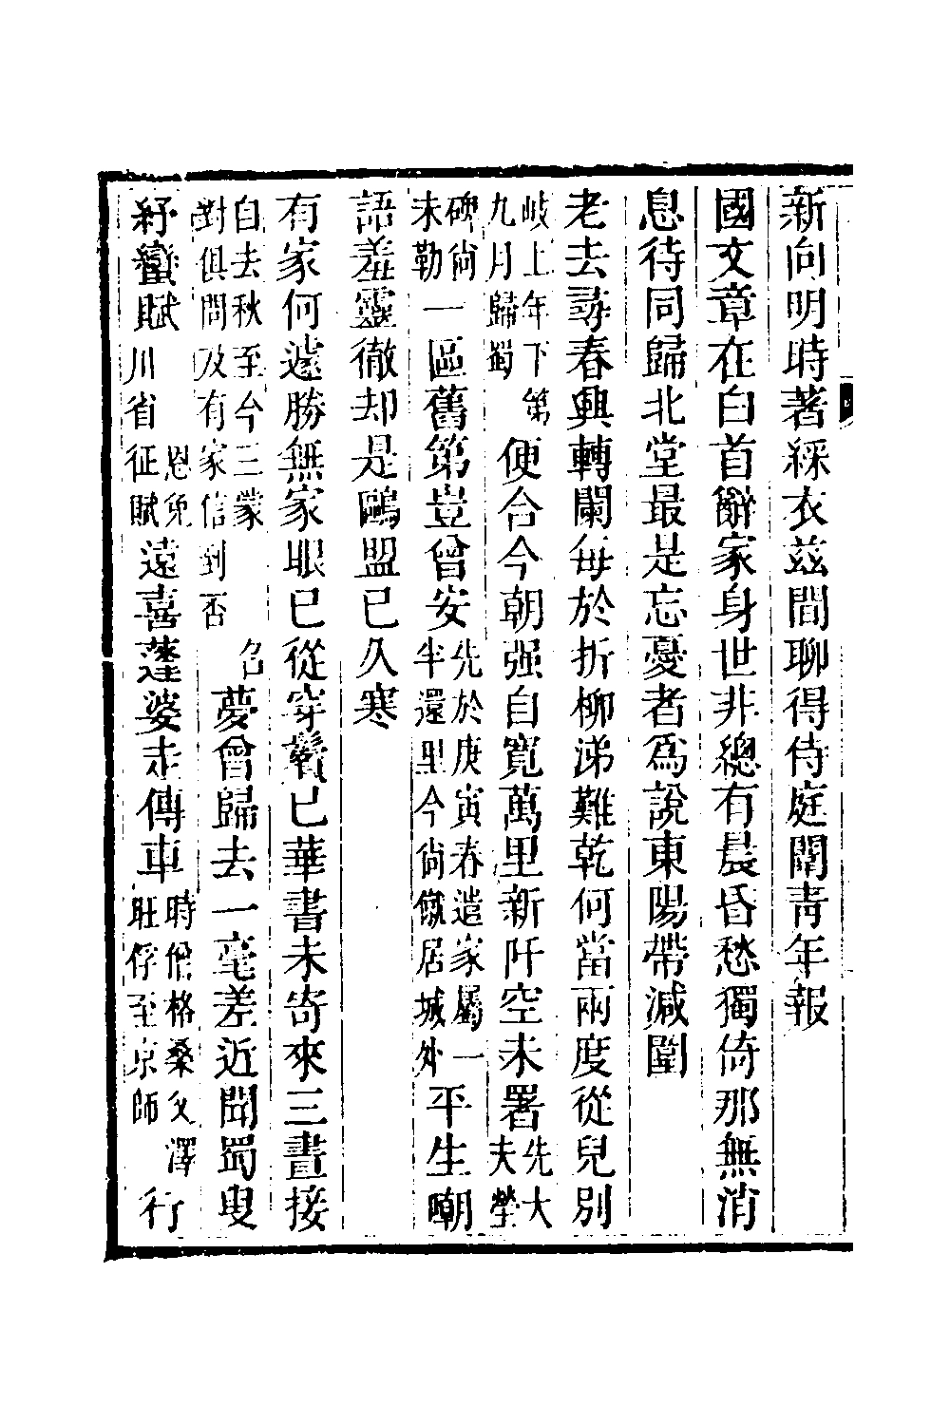 新向明時著綵衣茲間聊得侍庭闈青年報
國文章在白首辭家身世非總有晨昏愁獨倚那無消
息待同歸北堂最是忘憂者爲說東陽帶減圍
老去尋春興轉闌每於折柳涕難乾何當兩度從兒別
岐上年下第九月歸蜀便合今朝强自寬萬里新阡空未署先大夫塋
碑尙未勒一區舊第豈曾安先於庚寅春遣家屬一半還里今尙僦居城外平生嘲
語羞靈徹却是鷗盟已久寒
有家何遽勝無家眼已從穿鬢已華書未寄來三晝接
白去秋至今三蒙召對俱問及有家信到否夢曾歸去一毫差近聞蜀叟
紓蠻賦川省征賦恩免遠喜蓬婆走傳車時僧格桑父澤旺俘至京師行